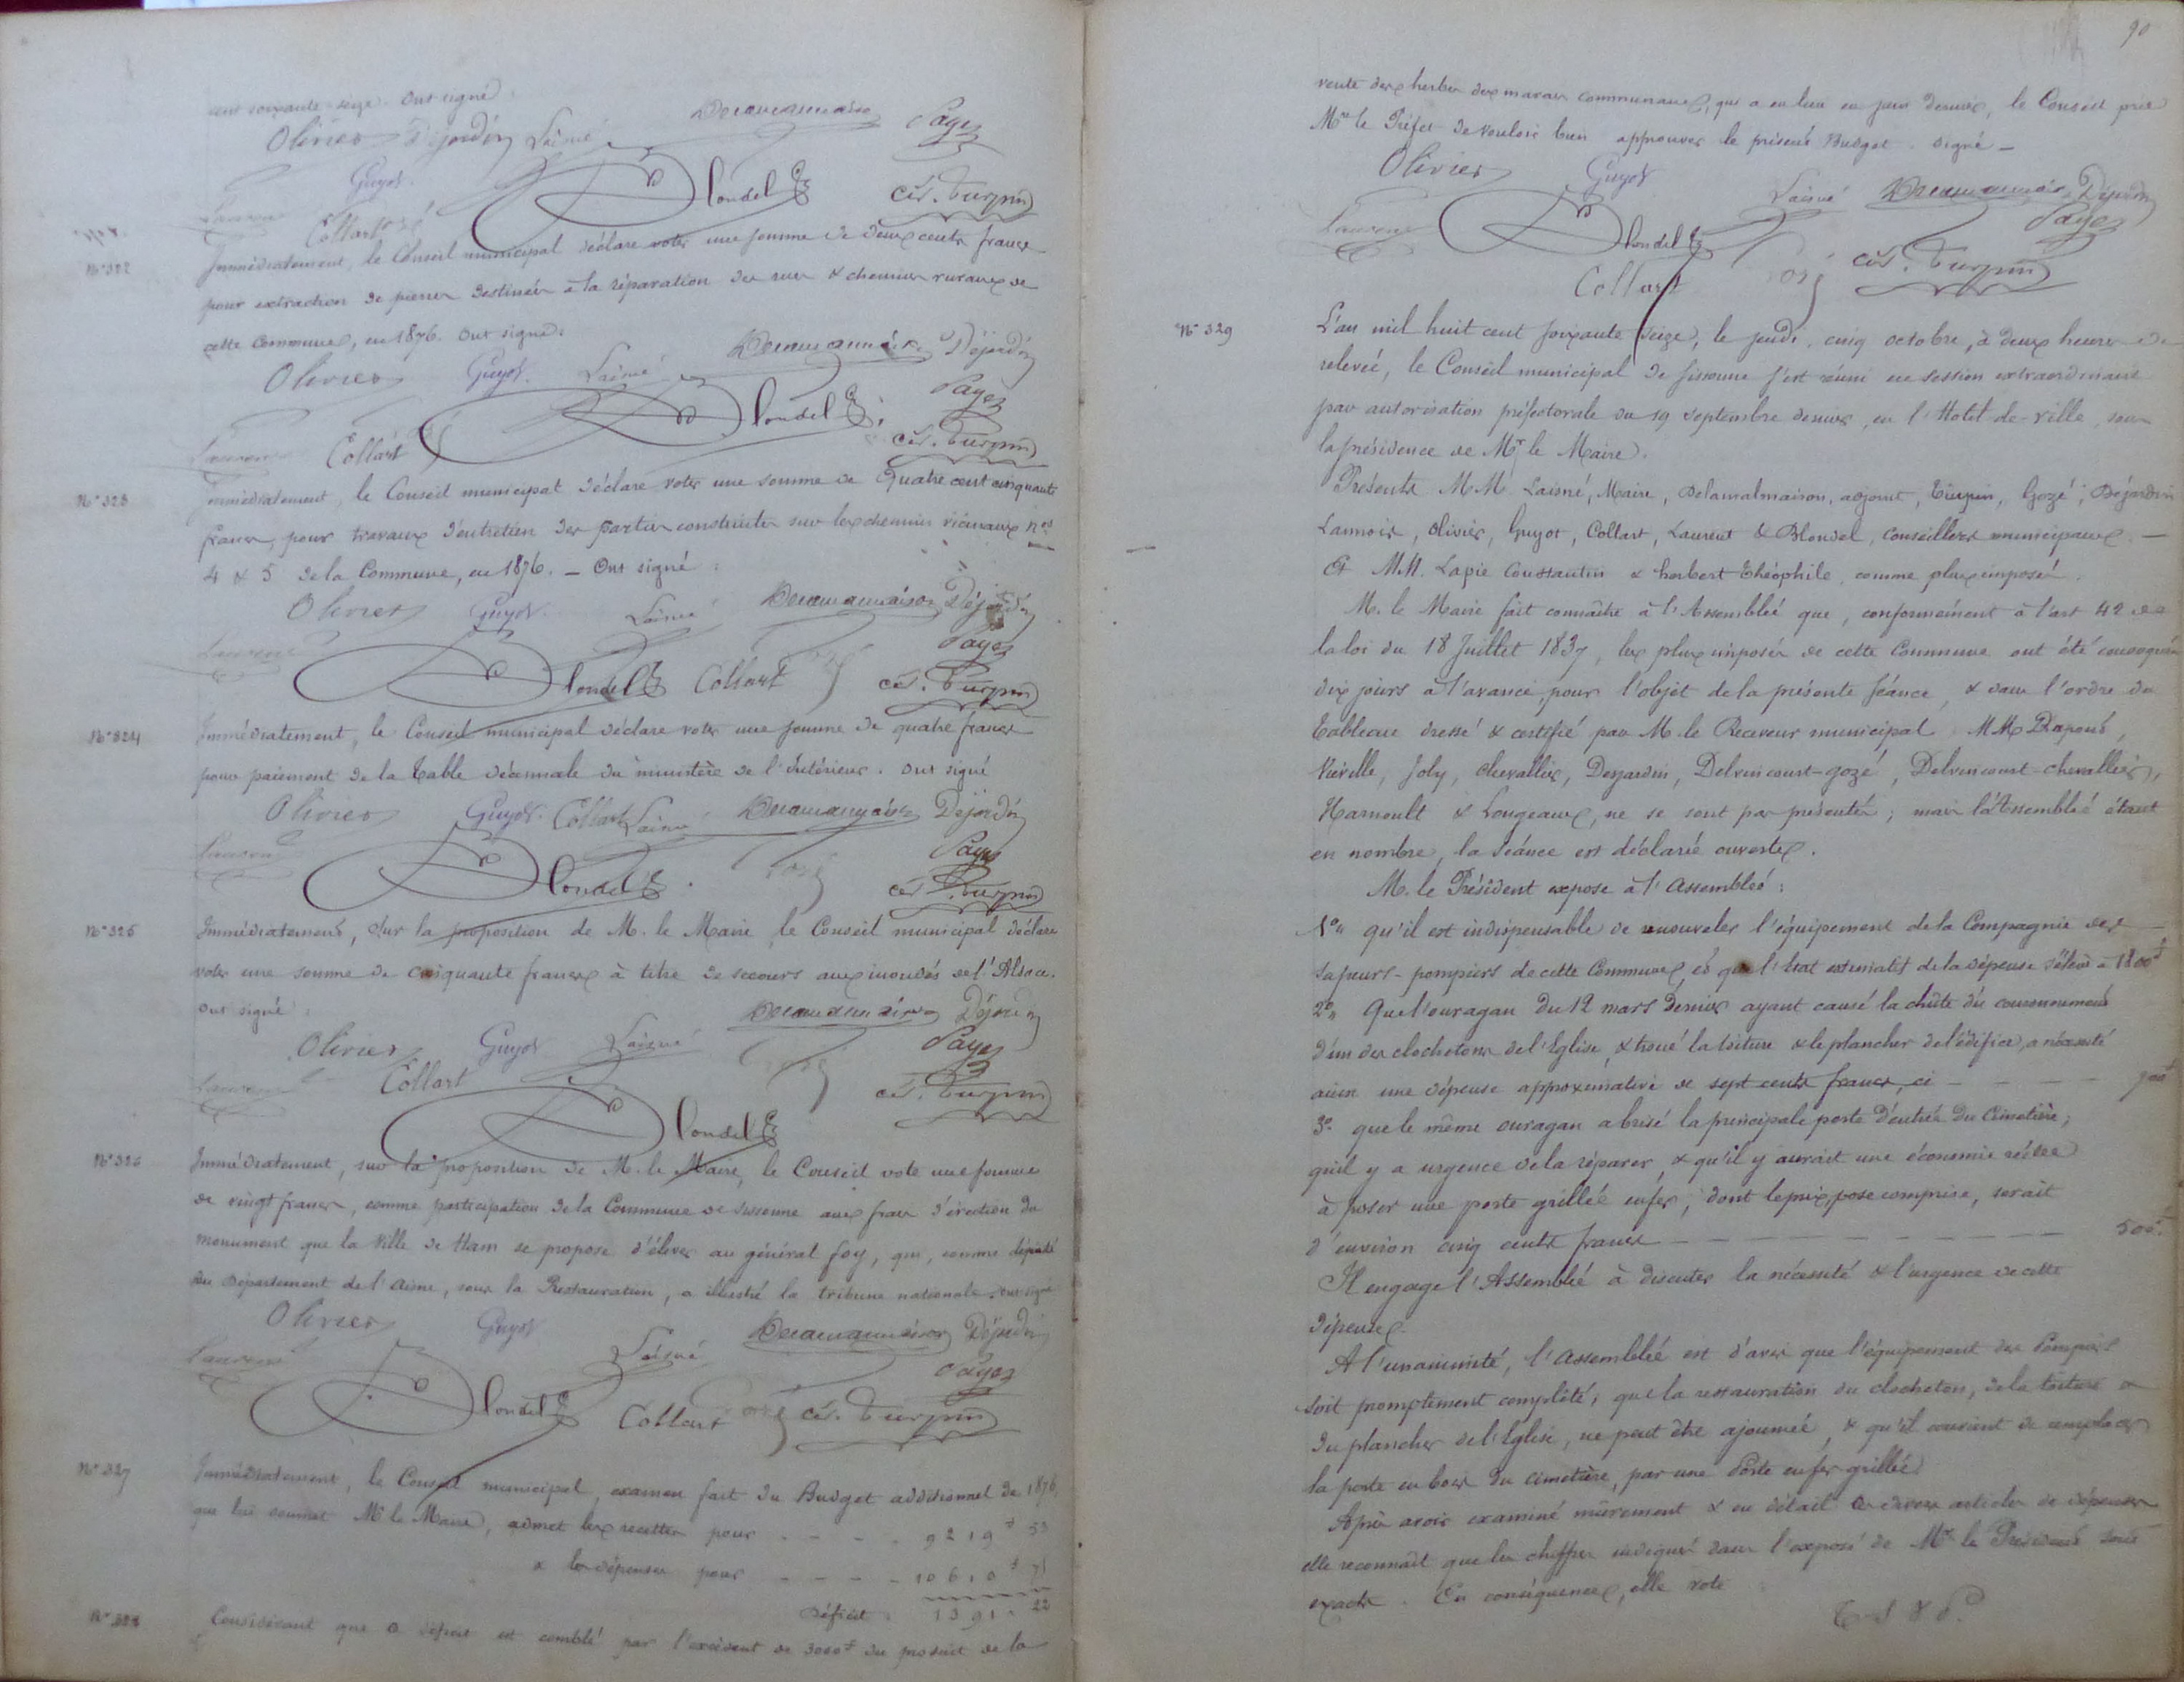 cent soixante-seize. Ont signé :
Olivier Déjardin Laisné Delamalmaison Payez
Guyot Blondel Cés. Turpin
Laurent Collart
N° 322
Immédiatement, le Conseil municipal déclare voter une somme de deux cents francs
pour extraction de pierres destinées à la réparation des rues & chemins ruraux de
cette Commune, en 1876. Ont signé :
Olivier Guyot Laisné Delamalmaison Déjardin
Blondel Payez
Laurent Collart Cés. Turpin
N° 323
Immédiatement, le Conseil municipal déclare voter une somme de Quatre cent cinquante
francs, pour travaux d'entretien des parties construites sur les chemins vicinaux nos
4 & 5 de la Commune, en 1876. — Ont signé :
Olivier Guyot Laisné Delamalmaison Déjardin
Laurent Payez
Blondel Collart Cés. Turpin
N° 324
Immédiatement, le Conseil municipal déclare voter une somme de quatre francs
pour paiement de la Table décennale du ministère de l'Intérieur. Ont signé
Olivier Guyot Collart Laisné Delamalmaison Déjardin
Laurent Payez
Blondel Gozé Cés. Turpin
N° 325
Immédiatement, sur la proposition de M. le Maire, le Conseil municipal déclare
voter une somme de cinquante francs à titre de secours aux inondés de l'Alsace.
Ont signé :
Delamalmaison Déjardin
Olivier Guyot Laisné Payez
Laurent Collart Gozé Cés. Turpin
Blondel
N° 326
Immédiatement, sur la proposition de M. le Maire, le Conseil vote une somme
de vingt francs, comme participation de la Commune de Sissonne aux frais d'érection du
monument que la Ville de Ham se propose d'élever au général Foy, qui, comme député
du Département de l'Aisne, sous la Restauration, a illustré la tribune nationale. Ont signé
Olivier Guyot Delamalmaison Déjardin
Laurent Laisné Payez
Blondel Collart Gozé Cés. Turpin
N° 327
Immédiatement, le Conseil municipal, examen fait du Budget additionnel de 1876,
que lui soumet M. le Maire, admet les recettes pour - - - - 9219 f 53
& les dépenses pour - - - - 10610 f 75
Déficit : 1391 . 22
N° 328
Considérant que ce déficit est comblé par l'excédent de 3000 f du produit de la
90
vente des herbes des marais communaux, qui a eu lieu en juin dernier, le Conseil prie
Mr le Préfet de vouloir bien approuver le présent Budget. Signé —
Olivier Guyot Laisné Delamalmaison Déjardin
Laurent Blondel Payez
Collart Gozé Cés. Turpin
N° 329
L'an mil huit cent soixante seize, le jeudi, cinq octobre, à deux heures de
relevée, le Conseil municipal de Sissonne s'est réuni en session extraordinaire
par autorisation préfectorale du 19 septembre dernier, en l'Hotel-de-ville, sous
la présidence de Mr le Maire.
Présents MM Laisné, Maire, Delamalmaison, adjoint, Turpin, Gozé, Déjardin
Lannois, Olivier, Guyot, Collart, Laurent & Blondel, conseillers municipaux. —
Et MM. Lapie Constantin & herbert Théophile, comme plus imposés.
M. le Maire fait connaître à l'Assemblée que, conformément à l'art 42 de
la loi du 18 Juillet 1837, les plus imposés de cette Commune ont été convoqués
dix jours à l'avance, pour l'objet de la présente séance, & dans l'ordre du
Tableau dressé & certifié par M. le Receveur municipal. MM
Viéville, Joly, Chevallier, Desjardin, Delvincourt-gozé, Delvincourt-chevallier,
Harnoult & Longeaux, ne se sont pas présentés ; mais l'Assemblée étant
en nombre, la séance est déclarée ouverte.
M. le Président expose à l'Assemblée :
1° qu'il est indispensable de renouveler l'équipement de la Compagnie des
sapeurs-pompiers de cette Commune, et que l'état estimatif de la dépense s'élève à 1800 f
2° Que l'ouragan du 12 mars dernier ayant causé la chûte du couronnement
d'un des clochetons de l'Eglise, & troué la toiture & le plancher de l'édifice, a nécessité
ainsi une dépense approximative de sept cents francs, ci - - - - 700 f
3° que le même ouragan a brisé la principale porte d'entrée du Cimetière ;
qu'il y a urgence de la réparer, & qu'il y aurait une économie réelle
à poser une porte grillée en fer, dont le prix, pose comprise, serait
d'environ cinq cents francs - - - - - - 500 f
Il engage l'Assemblée à discuter la nécessité & l'urgence de cette
dépense.
A l'unanimité, l'Assemblée est d'avis que l'équipement des Pompiers
soit promptement complété ; que la restauration du clocheton, de la toiture &
du plancher de l'Eglise, ne peut être ajournée, & qu'il convient de remplacer
la porte en bois du cimetière, par une Porte en fer grillée.
Après avoir examiné mûrement & en détail ces divers articles de dépenses
elle reconnaît que les chiffres indiqués dans l'exposé de Mr le Président sont
exacts. En conséquence, elle vote